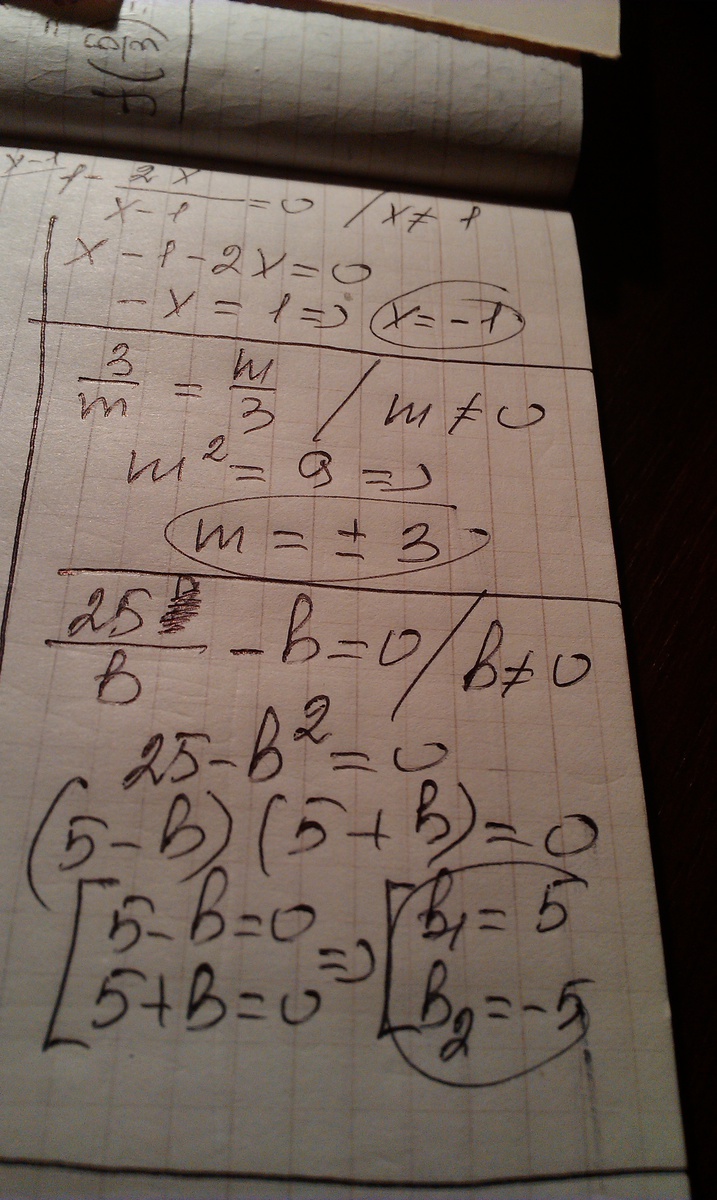 f(5/3)=
x-1
1 - 2x/(x-1) = 0 / x ≠ 1
x - 1 - 2x = 0
-x = 1 => x = -1
3/m = m/3 / m ≠ 0
m² = 9 =>
m = ± 3
25/b - b = 0 / b ≠ 0
25 - b² = 0
(5 - b) (5 + b) = 0
[ 5 - b = 0 => [ b₁ = 5
5 + b = 0 b₂ = -5